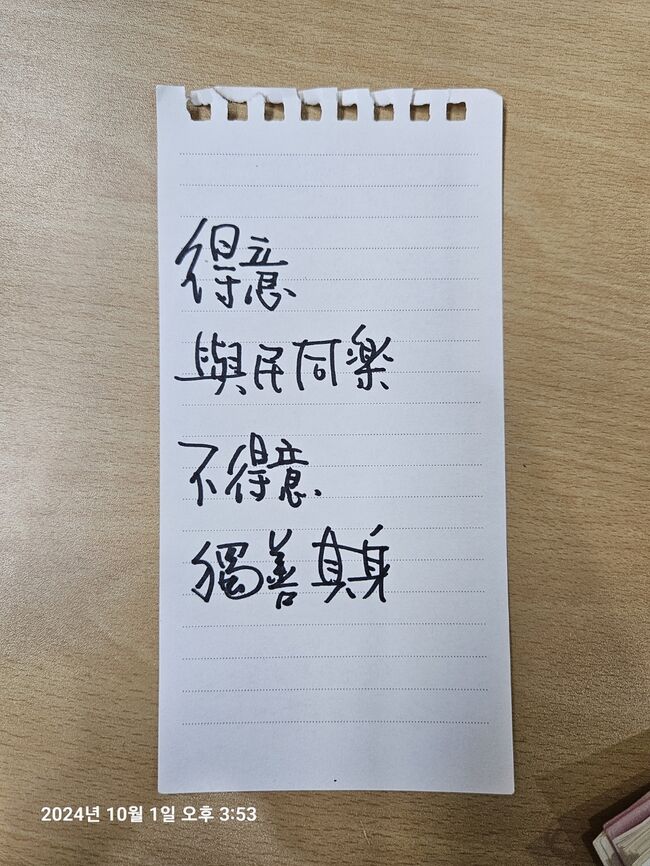 得意
與民同樂
不得意
獨善其身
2024년 10월 1일 오후 3:53